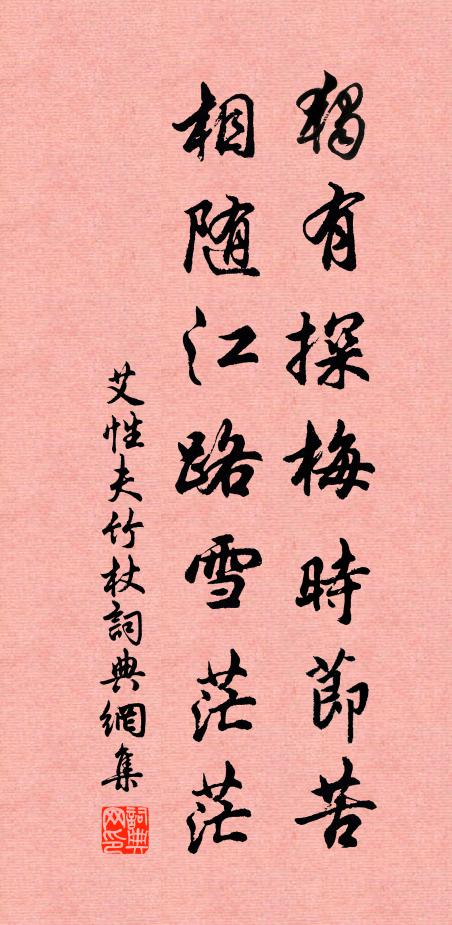 獨有探梅時節苦
相随江路雪茫茫
艾性夫竹杖詞典網集
詞典网印